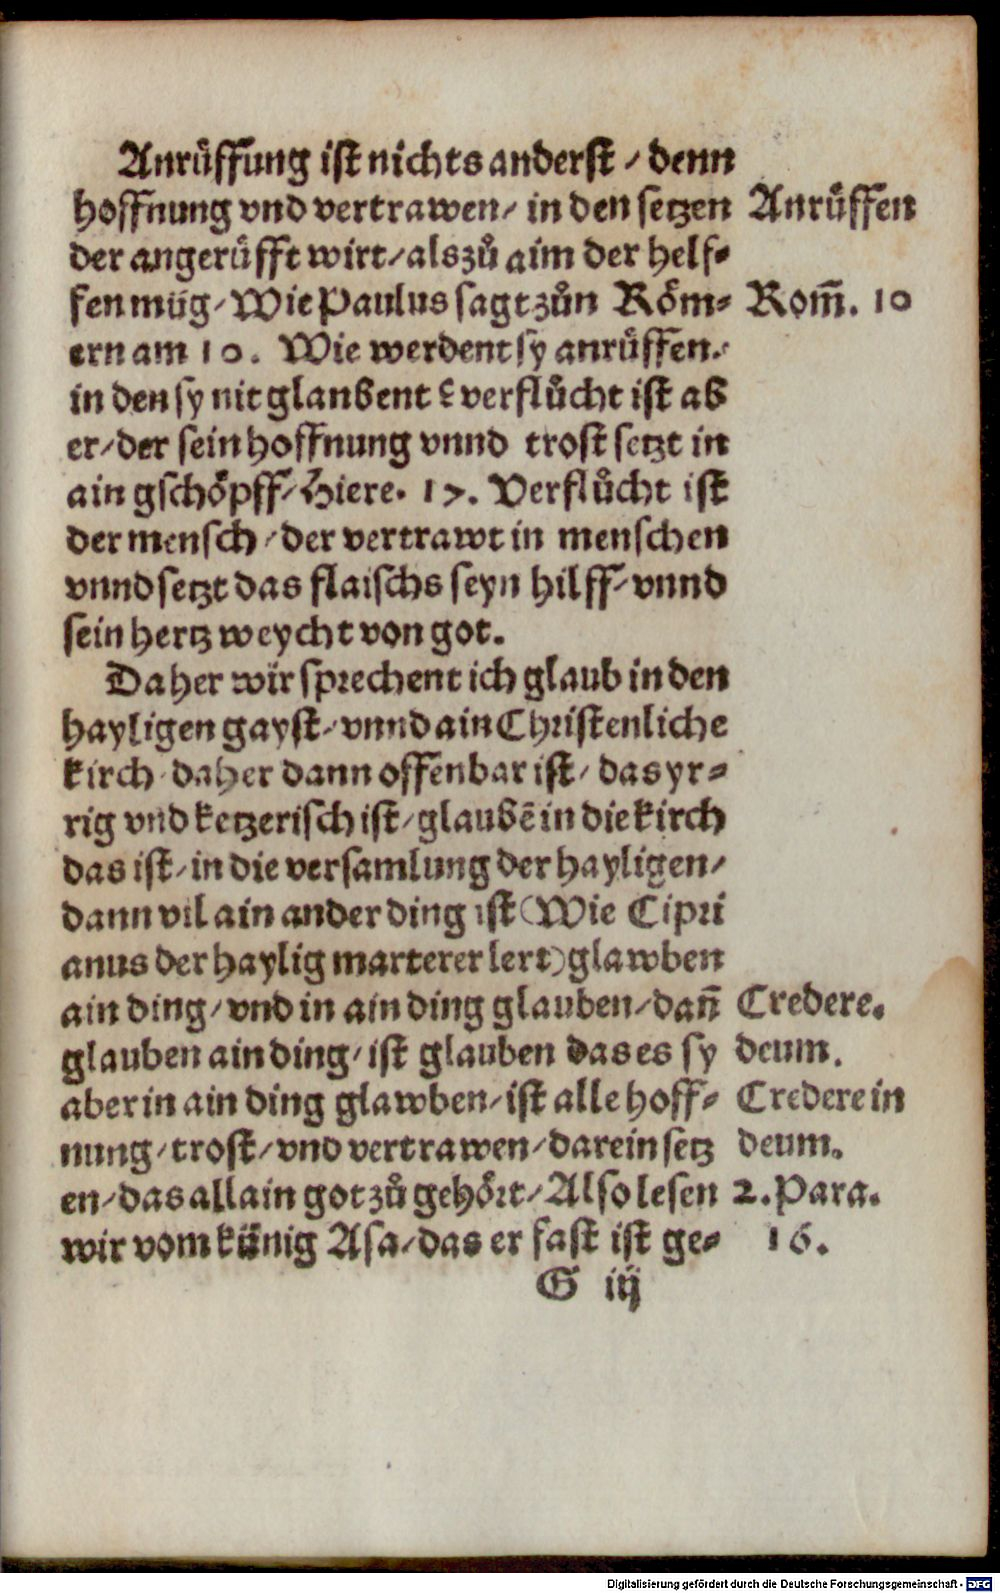 Anrůffung ist nichts anderst / denn
hoffnung vnd vertrawen / in den setzen
der angerůfft wirt / als zů aim der helf⸗
fen müg / Wie Paulus sagt zůn Röm⸗
ern am 10. Wie werdent sy anrůffen /
in den sy nit glaubent? verflůcht ist ab
er / der sein hoffnung vnnd trost setzt in
ain gschöpff / Hiere. 17. Verflůcht ist
der mensch / der vertrawt in menschen
vnnd setzt das flaischs seyn hilff / vnnd
sein hertz weycht von got.
Daher wir sprechent ich glaub in den
hayligen gayst / vnnd ain Christenliche
kirch / daher dann offenbar ist / das yr⸗
rig vnd ketzerisch ist / glaubē in die kirch
das ist / in die versamlung der hayligen /
dann vil ain ander ding ist (Wie Cipri
anus der haylig marterer lert) glawben
ain ding / vnd in ain ding glauben / dañ
glauben ain ding / ist glauben das es sy
aber in ain ding glawben / ist alle hoff⸗
nung / trost / vnd vertrawen / darein setz
en / das allain got zů gehört / Also lesen
wir vom künig Asa / das er fast ist ge⸗
G iij
Anrůffen
Rom̄. 10
Credere.
deum.
Credere in
deum.
2. Para.
16.
Digitalisierung gefördert durch die Deutsche Forschungsgemeinschaft - DFG